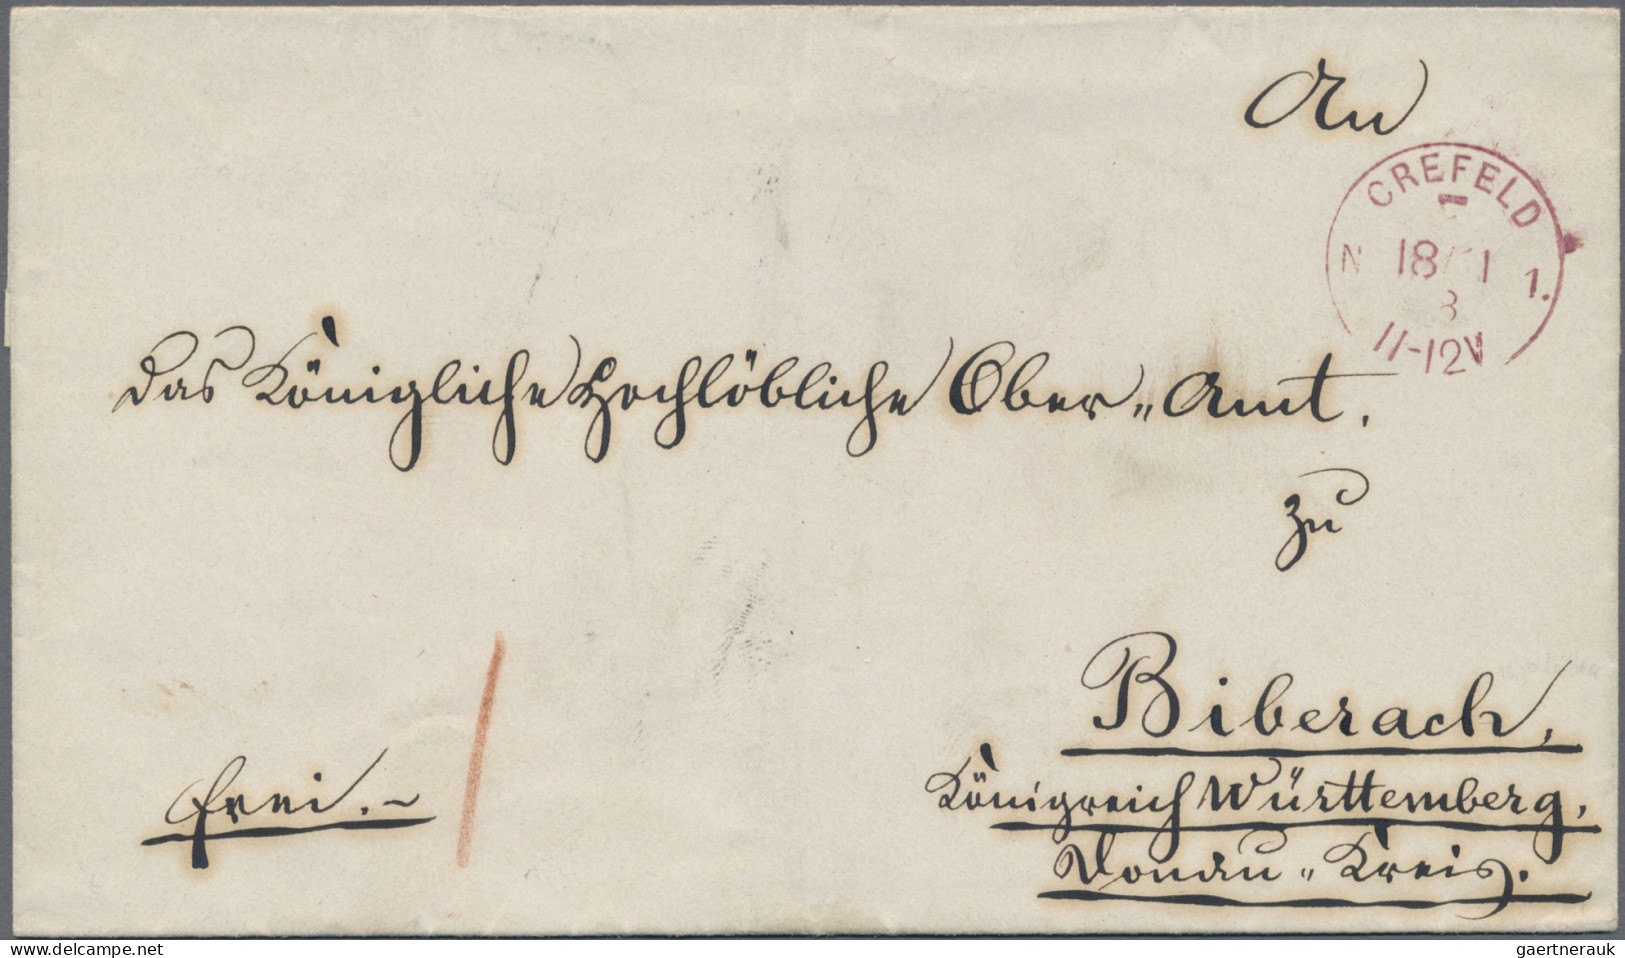 An
CREFELD
N 18 1 1.
3
11-12V
Das Königliche Hochlöbliche Ober„Amt.
zu
Biberach,
frei.~
Königreich Württemberg.
Donau„Kreis.
delcampe.net
gaertnerauk